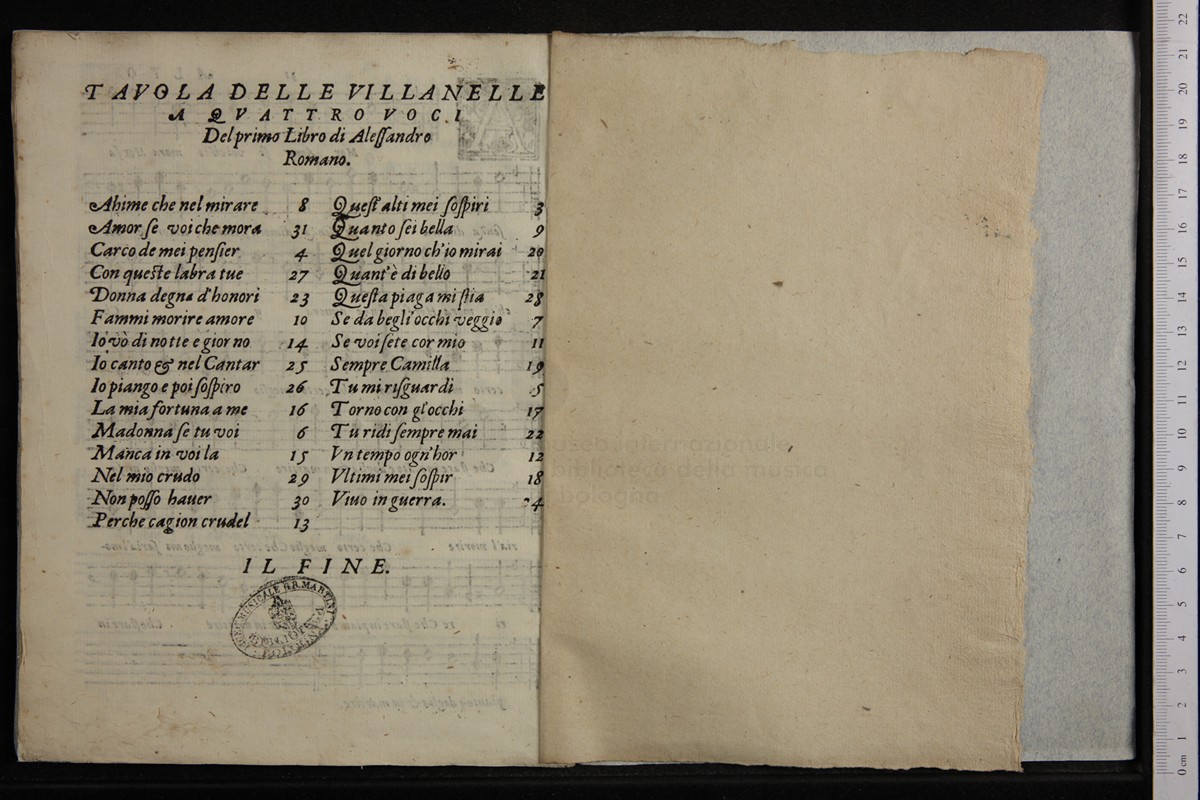 TAVOLA DELLE VILLANELLE
A QVATTRO VOCI
Del primo Libro di Alessandro
Romano.
Ahime che nel mirare 8
Amor se voi che mora 31
Carco de mei pensier 4
Con queste labra tue 27
Donna degna d'honori 23
Fammi morire amore 10
Io vò di notte e giorno 14
Io canto & nel Cantar 25
Io piango e poi sospiro 26
La mia fortuna a me 16
Madonna se tu voi 6
Manca in voi la 15
Nel mio crudo 29
Non posso hauer 30
Perche cagion crudel 13
Quest'alti mei sospiri 3
Quanto sei bella 9
Quel giorno ch'io mirai 20
Quant'è di bello 21
Questa piaga mi stia 28
Se da begl'occhi veggio 7
Se voi sete cor mio 11
Sempre Camilla 19
Tu mi risguardi 5
Torno con gl'occhi 17
Tu ridi sempre mai 22
Vn tempo ogn'hor 12
Vltimi mei sospir 18
Viuo in guerra. 24
IL FINE.
museo internazionale
biblioteca della musica
bologna
0 cm 1 2 3 4 5 6 7 8 9 10 11 12 13 14 15 16 17 18 19 20 21 22